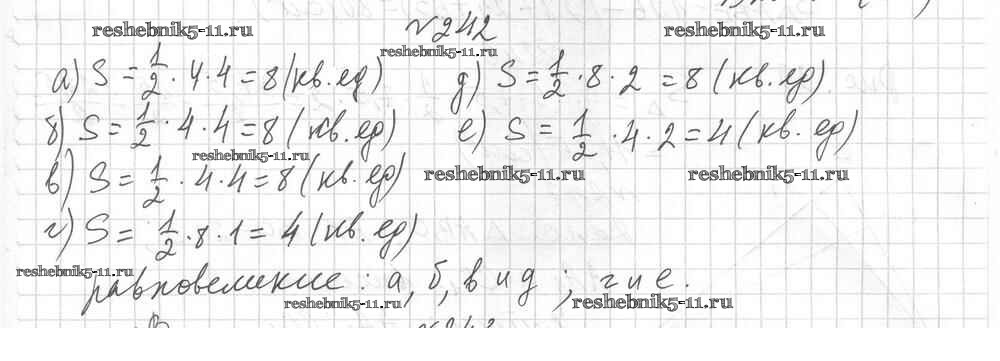 reshebnik5-11.ru №242 reshebnik5-11.ru
reshebnik5-11.ru
а) S = 1/2 · 4 · 4 = 8 (кв. ед) д) S = 1/2 · 8 · 2 = 8 (кв. ед)
б) S = 1/2 · 4 · 4 = 8 (кв. ед) е) S = 1/2 · 4 · 2 = 4 (кв. ед)
reshebnik5-11.ru
в) S = 1/2 · 4 · 4 = 8 (кв. ед) reshebnik5-11.ru reshebnik5-11.ru
г) S = 1/2 · 8 · 1 = 4 (кв. ед)
reshebnik5-11.ru
равновеликие: а, б, в и д; г и е.
reshebnik5-11.ru reshebnik5-11.ru